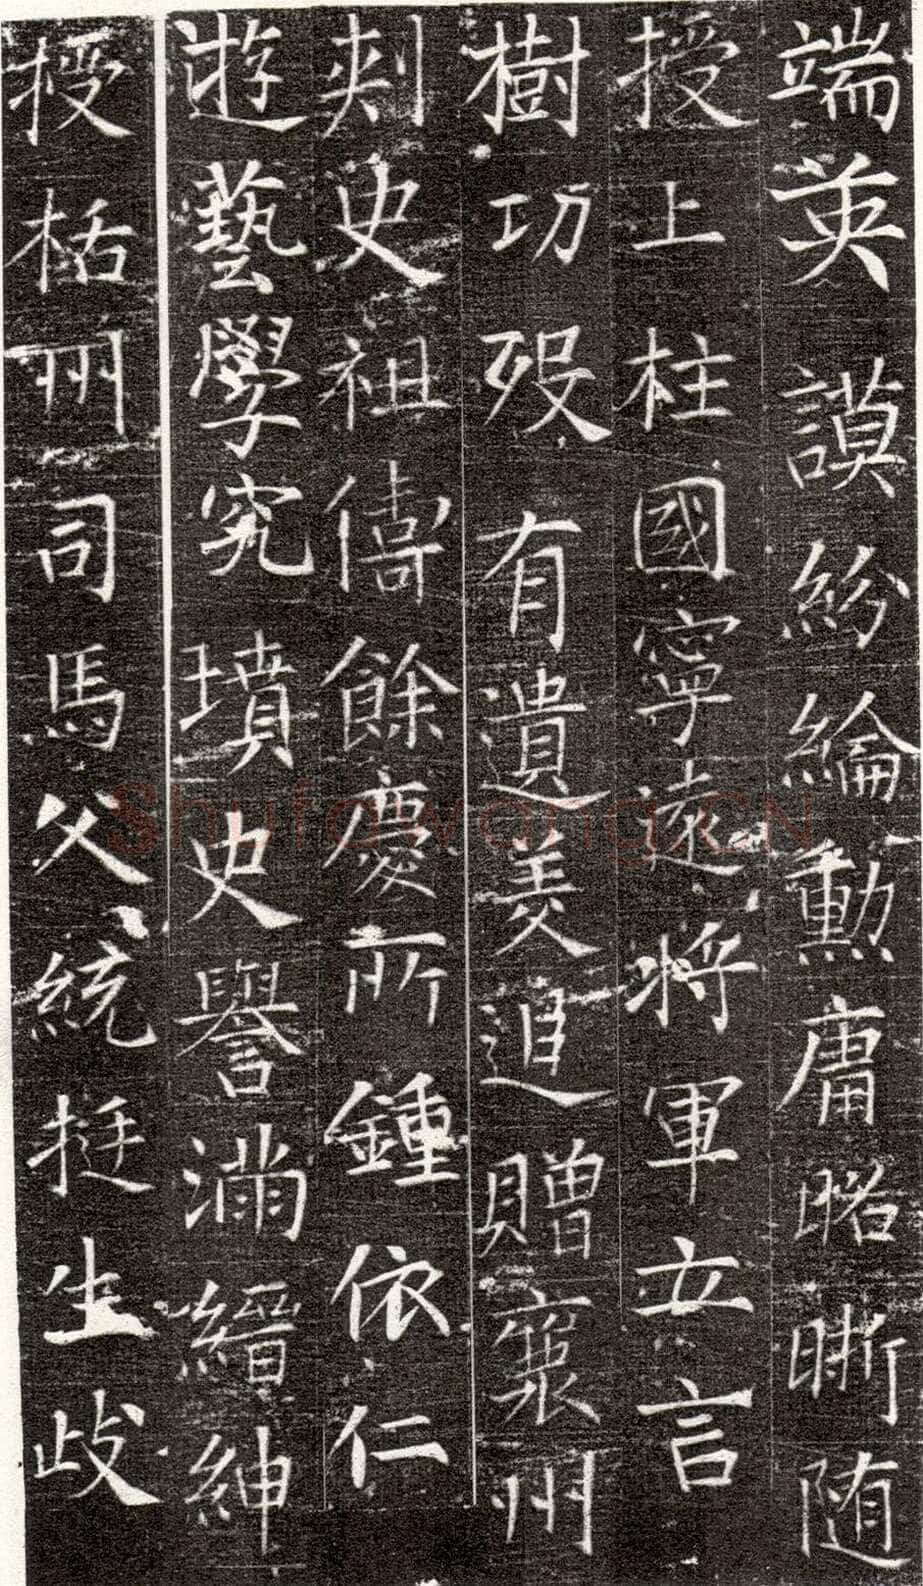 端英謨紛綸勳庸晧晰随
授上柱國寧遠将軍立言
樹功歿有遺美追贈襄州
刺史祖儔餘慶所鍾依仁
遊藝學究墳史譽滿縉紳
授括州司馬父統挺生歧
Shufawang.CN